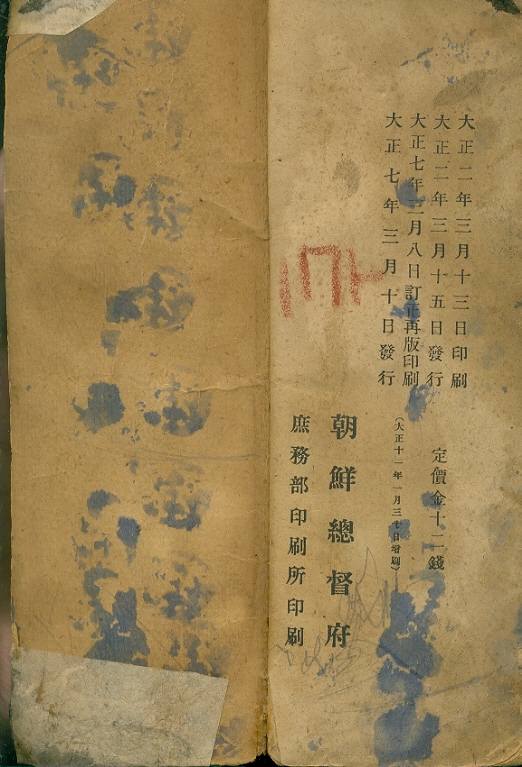 大正二年三月十三日印刷
大正二年三月十五日發行
大正七年三月八日訂正再版印刷
大正七年三月十日發行
定價金十二錢
(大正十一年一月三十日增刷)
朝鮮總督府
庶務部印刷所印刷